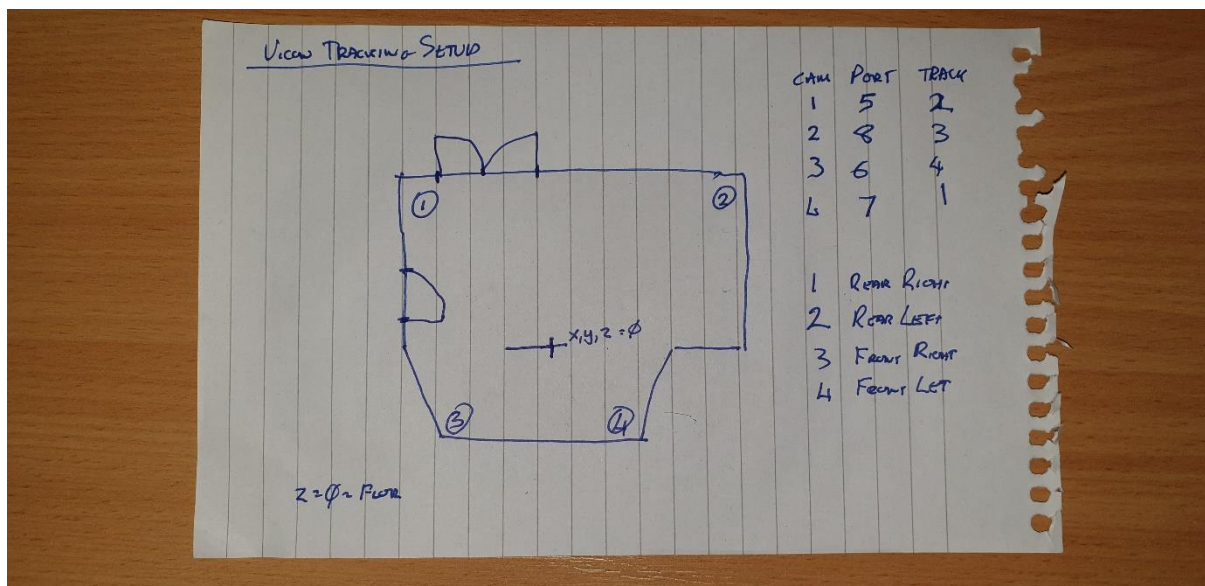 VICON TRACKING SETUP
CAM PORT TRACK
1 5 2
2 8 3
3 6 4
4 7 1
1
2
x,y,z=Ø
3
4
1 REAR RIGHT
2 REAR LEFT
3 FRONT RIGHT
4 FRONT LET
z=Ø=FLOOR